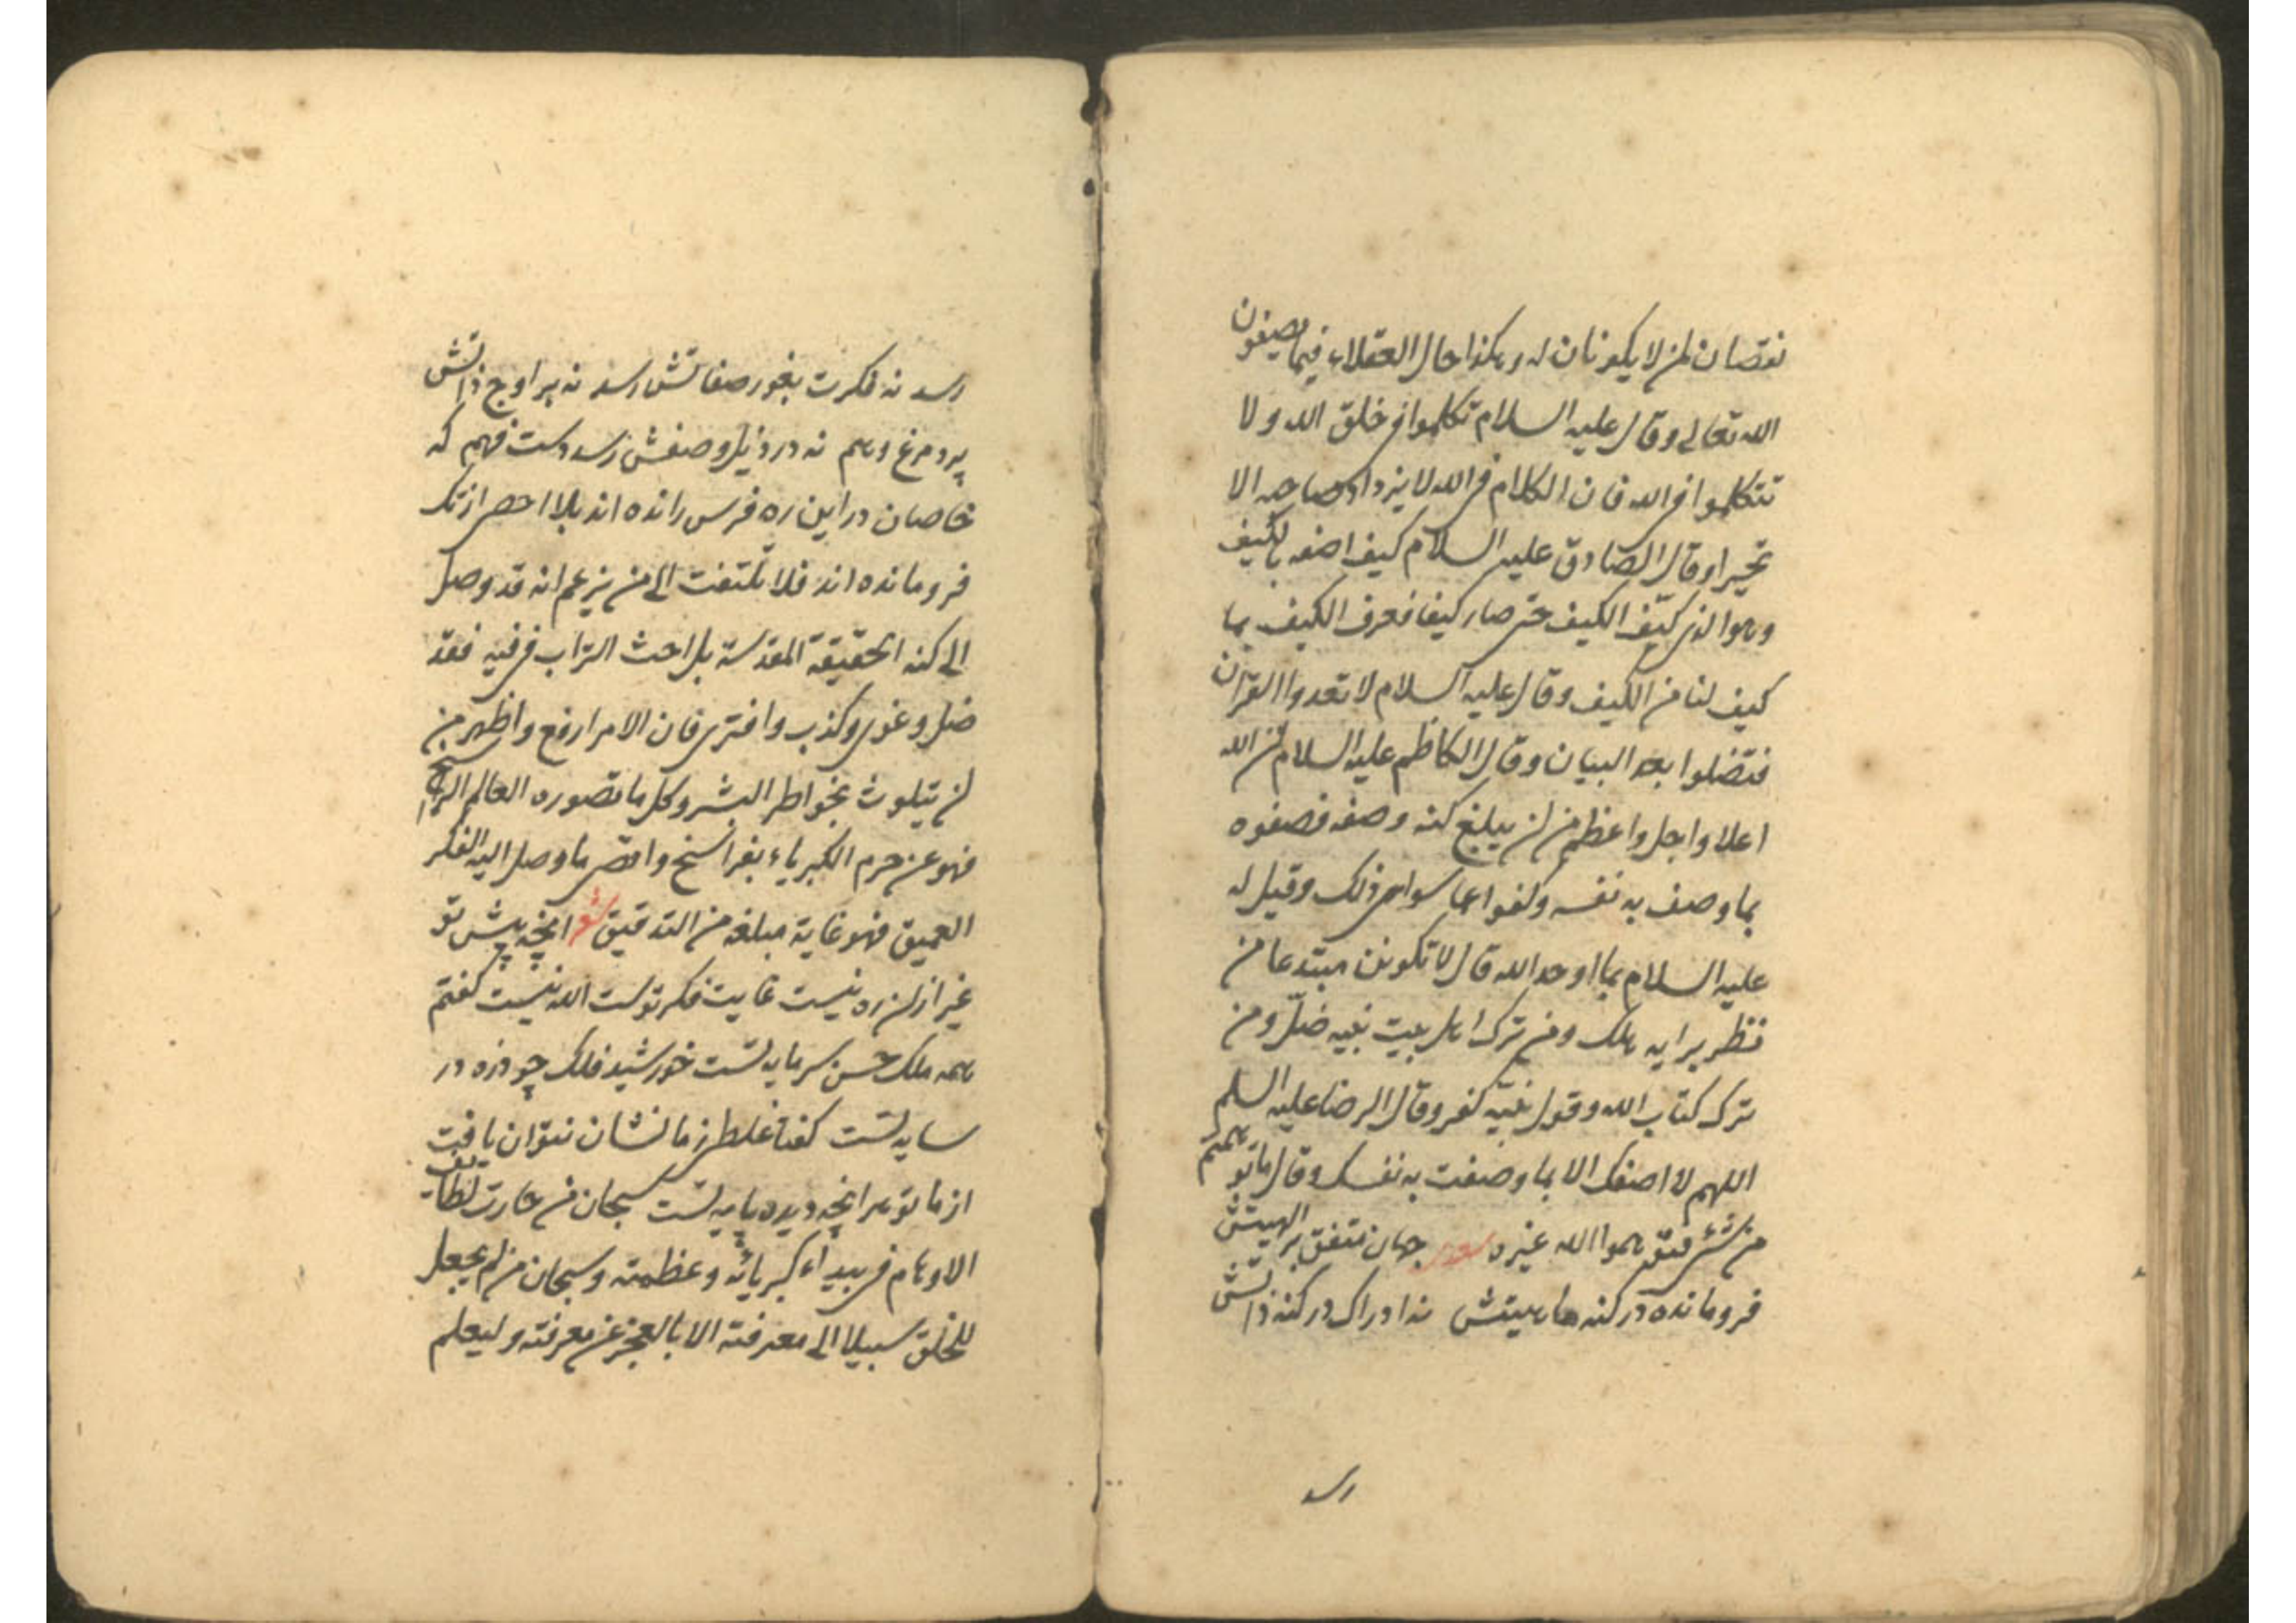 نقصان لمن لا يكونان له و هكذا حال العقلاء فيما يصفون
الله تعالى و قال عليه السلام تكلموا في خلق الله و لا
تتكلموا في الله فان الكلام في الله لا يزداد صاحبه الا
تحيرا و قال الصّادق عليه السلام كيف اصفه بالكيف
و هو الذي كيّف الكيف حتى صار كيفا فعرف الكيف بما
كيف لنا من الكيف و قال عليه السلام لا تعدوا القرآن
فتضلوا بعد البيان و قال الكاظم عليه السلام ان الله
اعلا و اجل و اعظم من ان يبلغ كنه وصفه فصفوه
بما وصف به نفسه و كفوا عما سوى ذلك و قيل له
عليه السلام بما اوحد الله قال لا تكونن مبتدعا من
نظر برايه هلك و من ترك اهل بيت نبيه ضلّ و من
ترك كتاب الله و قول نبيّه كفر و قال الرضا عليه السلم
اللهم لا اصفك الا بما وصفت به نفسك و قال ما توهمتم
من شئ فتوهموا الله غيره شعر جهان متفق بر الهيتش
فرومانده در كنه ماهيتش نه ادراك در كنه ذاتش
رسد
رسد نه فكرت بغور صفاتش رسد نه بر اوج ذاتش
پرد مرغ وهم نه در ذيل وصفش رسد دست فهم كه
خاصان در اين ره فرس رانده اند بلا احصى از تك
فرومانده اند فلا تلتفت الى من يزعم انه قد وصل
الى كنه الحقيقة المقدسة بل احث التراب في فيه فقد
ضل و غوى و كذب و افترى فان الامر ارفع و اظهر من
ان يتلوث بخواطر البشر و كل ما تصوره العالم الراسخ
فهو عن حرم الكبرياء بفراسخ و اقصى ما وصل اليه الفكر
العميق فهو غاية مبلغه من التدقيق شعر آنچه پيش تو
غير از ان ره نيست غايت فكر توست الله نيست كفتم
همه ملك حسن سرمايه تست خورشيد فلك چو ذره در
سايه تست كفتا غلطى ز ما نشان نتوان يافت
از ما تو هر آنچه ديده پايه تست سبحان من حارت لطائف
الاوهام في بيداء كبريائه و عظمته و سبحان من لم يجعل
للخلق سبيلا الى معرفته الا بالعجز عن معرفته و ليعلم